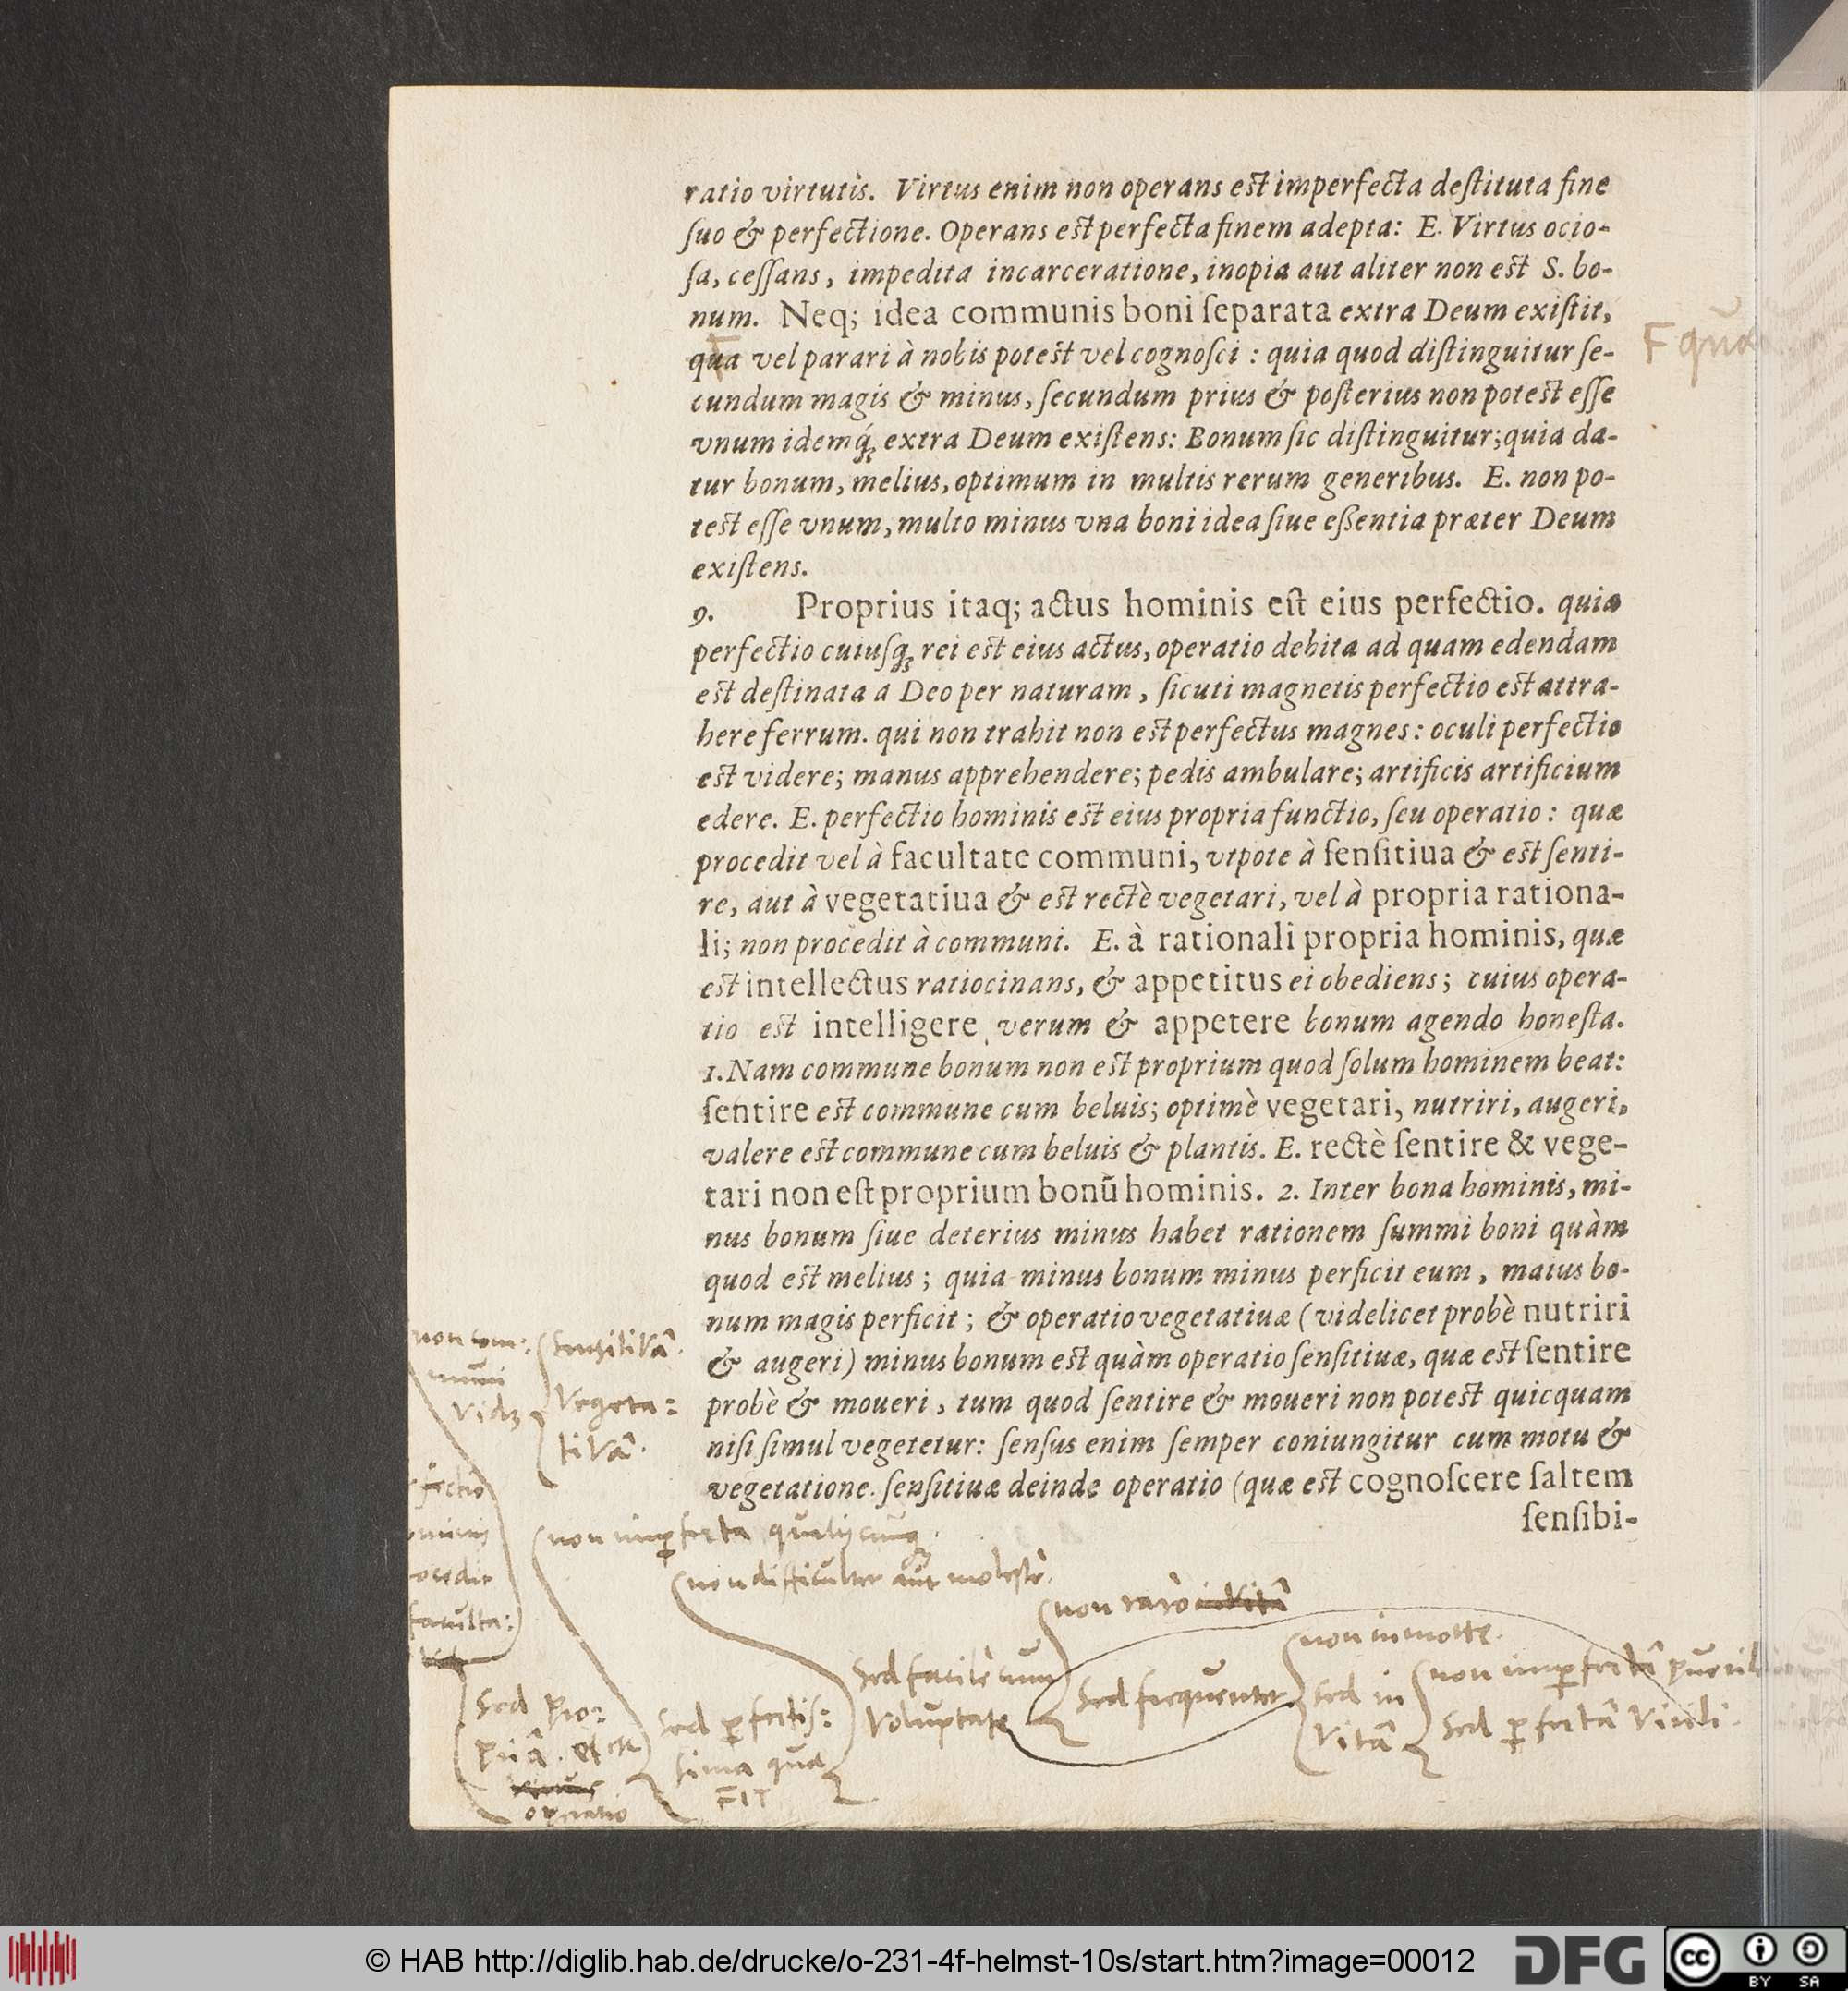 ratio virtutis. Virtus enim non operans est imperfecta deſtituta fine
ſuo & perfectione. Operans est perfecta finem adepta: E. Virtus ocio-
ſa, ceſſans, impedita incarceratione, inopia aut aliter non est S. bo-
num. Neq; idea communis boni ſeparata extra Deum exiſtit,
qua vel parari à nobis potest vel cognoſci : quia quod diſtinguitur ſe-
cundum magis & minus, ſecundum prius & poſterius non potest eſſe
vnum idemq́; extra Deum exiſtens: Bonum ſic diſtinguitur; quia da-
tur bonum, melius, optimum in multis rerum generibus. E. non po-
test eſſe vnum, multo minus vna boni idea ſiue eßentia præter Deum
exiſtens.
9. Proprius itaq; actus hominis eſt eius perfectio. quia
perfectio cuiuſq; rei est eius actus, operatio debita ad quam edendam
est deſtinata a Deo per naturam, ſicuti magnetis perfectio est attra-
here ferrum. qui non trahit non est perfectus magnes: oculi perfectio
est videre; manus apprehendere; pedis ambulare; artificis artificium
edere. E. perfectio hominis est eius propria functio, ſeu operatio: quæ
procedit vel à facultate communi, vtpote à ſenſitiua & est ſenti-
re, aut à vegetatiua & est rectè vegetari, vel à propria rationa-
li; non procedit à communi. E. à rationali propria hominis, quæ
est intellectus ratiocinans, & appetitus ei obediens; cuius opera-
tio est intelligere verum & appetere bonum agendo honeſta.
1. Nam commune bonum non est proprium quod ſolum hominem beat:
ſentire est commune cum beluis; optimè vegetari, nutriri, augeri,
valere est commune cum beluis & plantis. E. rectè ſentire & vege-
tari non eſt proprium bonũ hominis. 2. Inter bona hominis, mi-
nus bonum ſiue deterius minus habet rationem ſummi boni quàm
quod est melius; quia minus bonum minus perficit eum, maius bo-
num magis perficit; & operatio vegetatiuæ (videlicet probè nutriri
& augeri) minus bonum est quàm operatio ſenſitiuæ, quæ est ſentire
probè & moueri, tum quod ſentire & moueri non potest quicquam
niſi ſimul vegetetur: ſenſus enim ſemper coniungitur cum motu &
vegetatione. ſenſitiuæ deinde operatio (quæ est cognoſcere ſaltem
ſenſibi-
F quâ
non com:
muni
Sensitivâ.
Vegeta:
tivâ.
faculta:
non imperfecta qualiscunq
non difficulter aut molestè.
non rarò
non in morte.
Sed facilè cum
Voluptate
Sed frequenter
sed in
Vitâ
sed perfectâ Virili.
Sed pro:
priâ.
operatio
sed perfectis:
sima quæ
FIT
© HAB http://diglib.hab.de/drucke/o-231-4f-helmst-10s/start.htm?image=00012
DFG
cc
BY SA